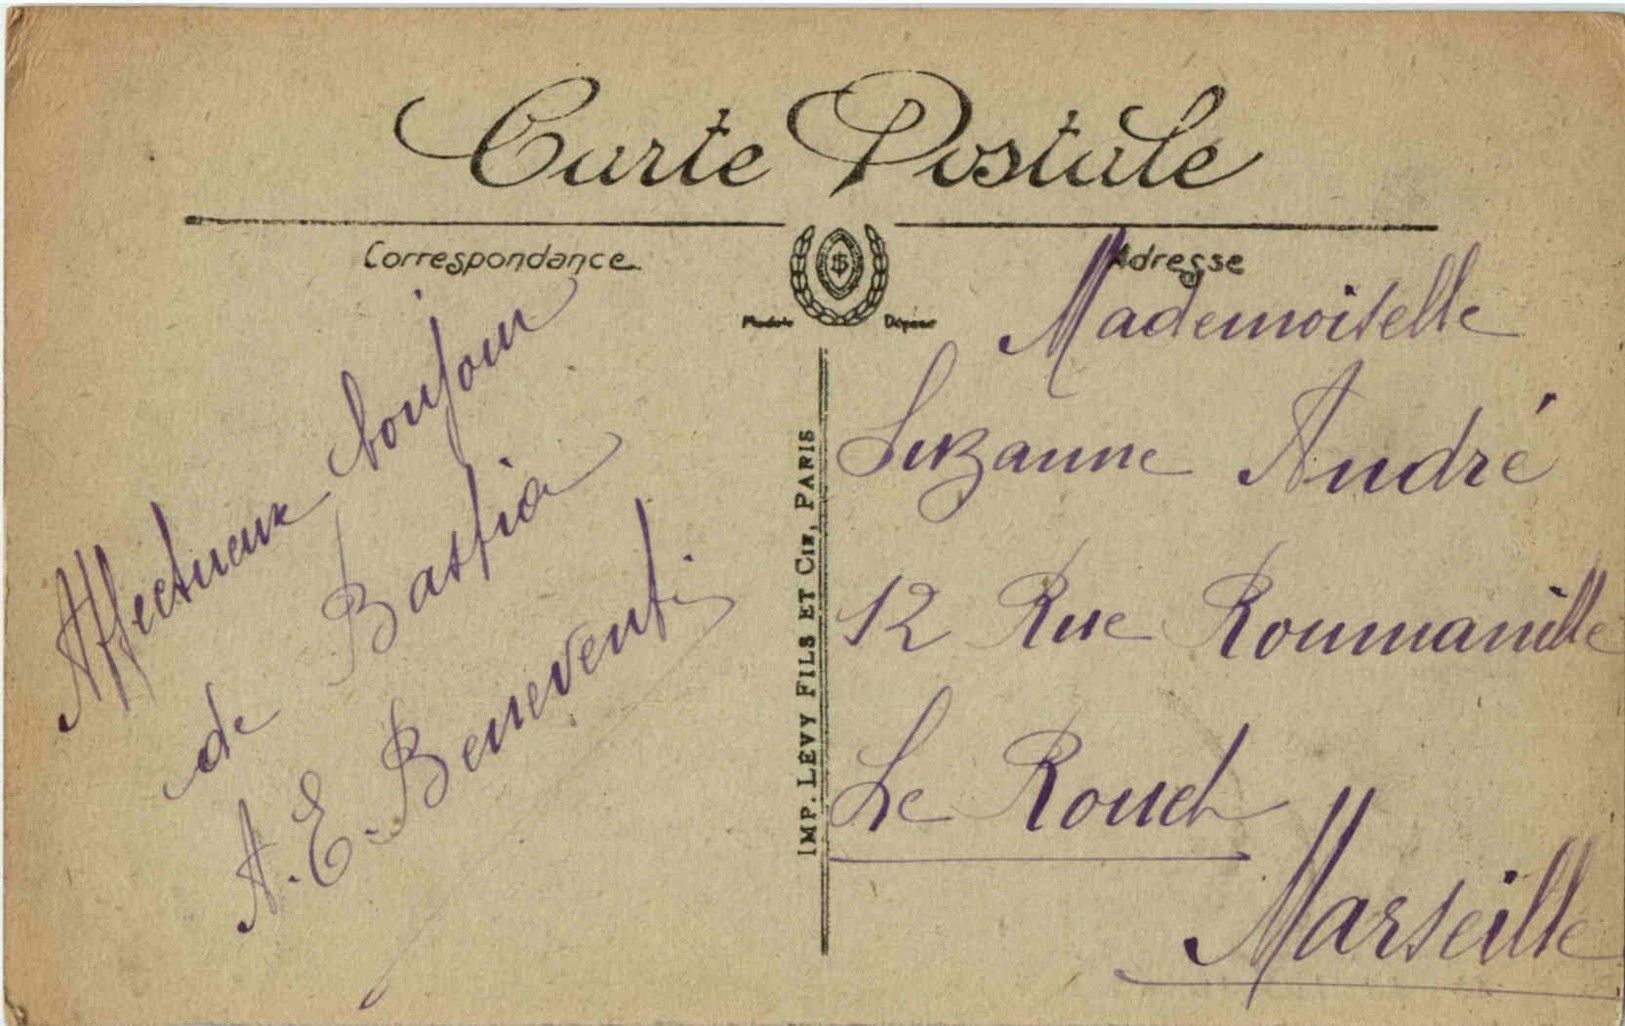 Carte Postale
Correspondance
Adresse
Modèle Déposé
IMP. LEVY FILS ET CIE, PARIS
Affectueux bonjour
de Bastia
A. E. Beneventi
Mademoiselle
Suzanne André
12 Rue Roumanille
Le Rouet
Marseille